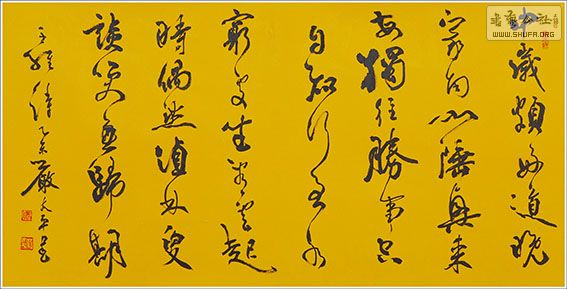 中歲頗好道晚
家南山陲興來
每獨往勝事空
自知行到水
窮處坐看雲起
時偶然值林叟
談笑無歸期
王維詩 嚴太平書
WWW.SHUFA.ORG